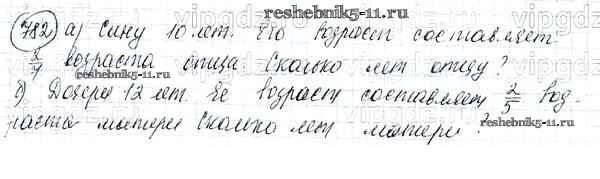 reshebnik5-11.ru
782 а) Сыну 10 лет. Его возраст составляет
2/7 возраста отца Сколько лет отцу?
б) Дочери 12 лет. Ее возраст составляет 2/5 воз-
раста матери Сколько лет матери?
reshebnik5-11.ru